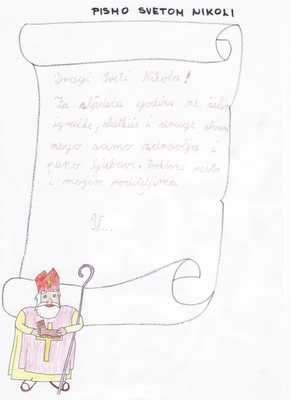 PISMO SVETOM NIKOLI
Dragi Sveti Nikola!
Za sljedeću godinu ne želim
igračke, slatkiše i druge stvari
nego samo zdravlja i
puno ljubavi. Pokloni nešto
i mojim roditeljima.
V...